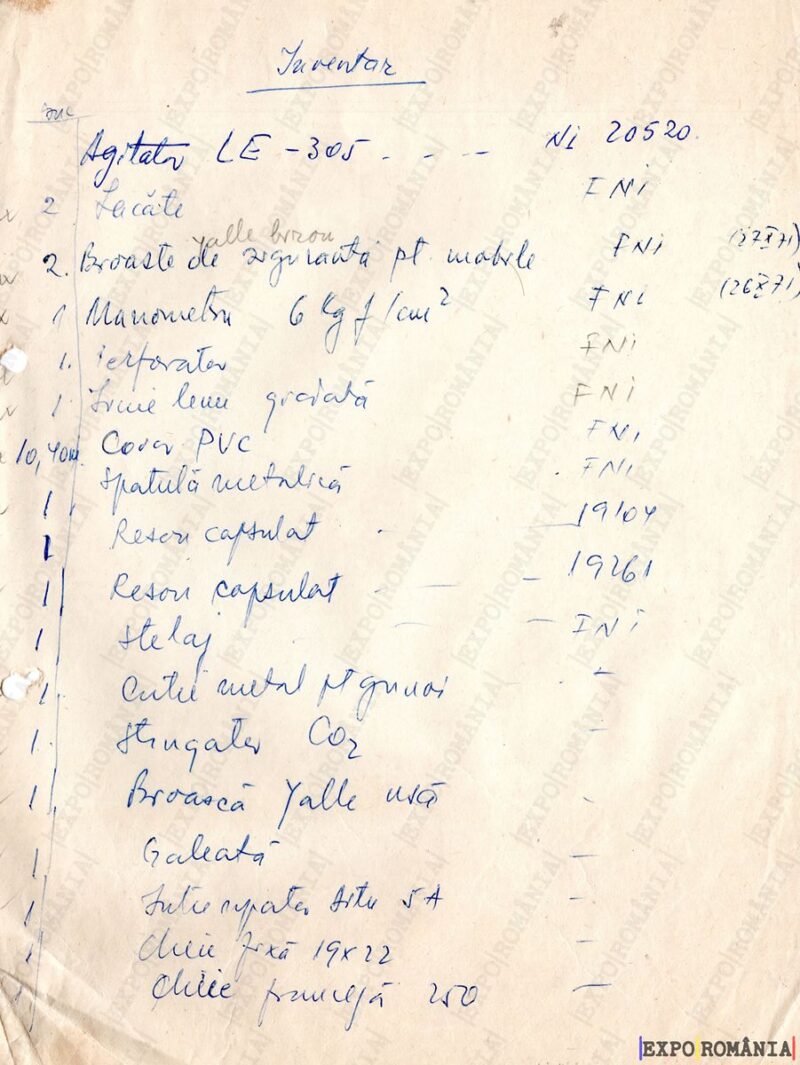 Inventar
buc
Agitator LE-305 - - - Ni 20520.
2 Lacăte FNi
Yalle birou
2. Broaste de siguranta pt. mobile FNi (27 X 71)
1 Manometru 6 Kgf/cm² FNi (26 X 71)
1. Perforator FNi
1 lemn gradată FNi
10,40m. Covor PVC FNi
1 Spatulă metalică FNi
1 Resou capsulat - 19104
1 Resou capsulat - 19261
1 Stelaj - FNi
1. Cutie metal pt gunoi -
1. Stingator CO2 -
1 Broască Yalle usă -
1 Galeată -
1 Intrerupator 5A -
1 Cheie fixă 19x22 -
1 Cheie franceză 250 -
|EXPO|ROMÂNIA|